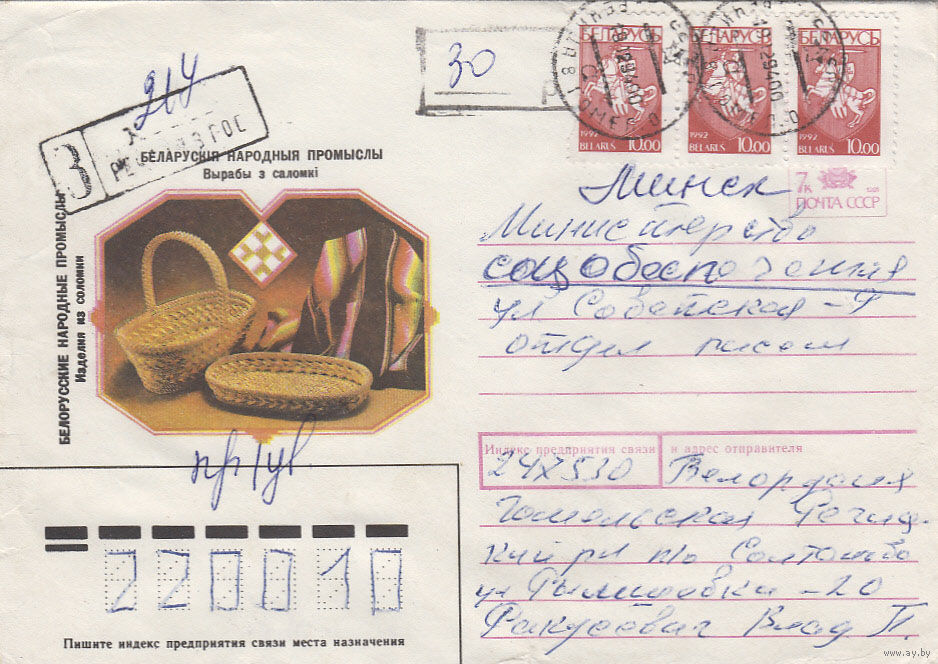 30
214
З
БЕЛАРУСЬ БЕЛАРУСЬ БЕЛАРУСЬ
1992 1992 1992
BELARUS 10.00 BELARUS 10.00 BELARUS 10.00
7к
1991
ПОЧТА СССР
БЕЛАРУСКІЯ НАРОДНЫЯ ПРОМЫСЛЫ
Вырабы з саломкі
БЕЛОРУССКИЕ НАРОДНЫЕ ПРОМЫСЛЫ
Изделия из соломки
Минск
Министерство
соцобеспечения
ул Советская - 9
отдел писем
Индекс предприятия связи и адрес отправителя
247530 Белоруссия
Гомельская Речиц-
кий рн п/о
ул - 20
Влад П.
пр/ув
220010
Пишите индекс предприятия связи места назначения
www.ay.by